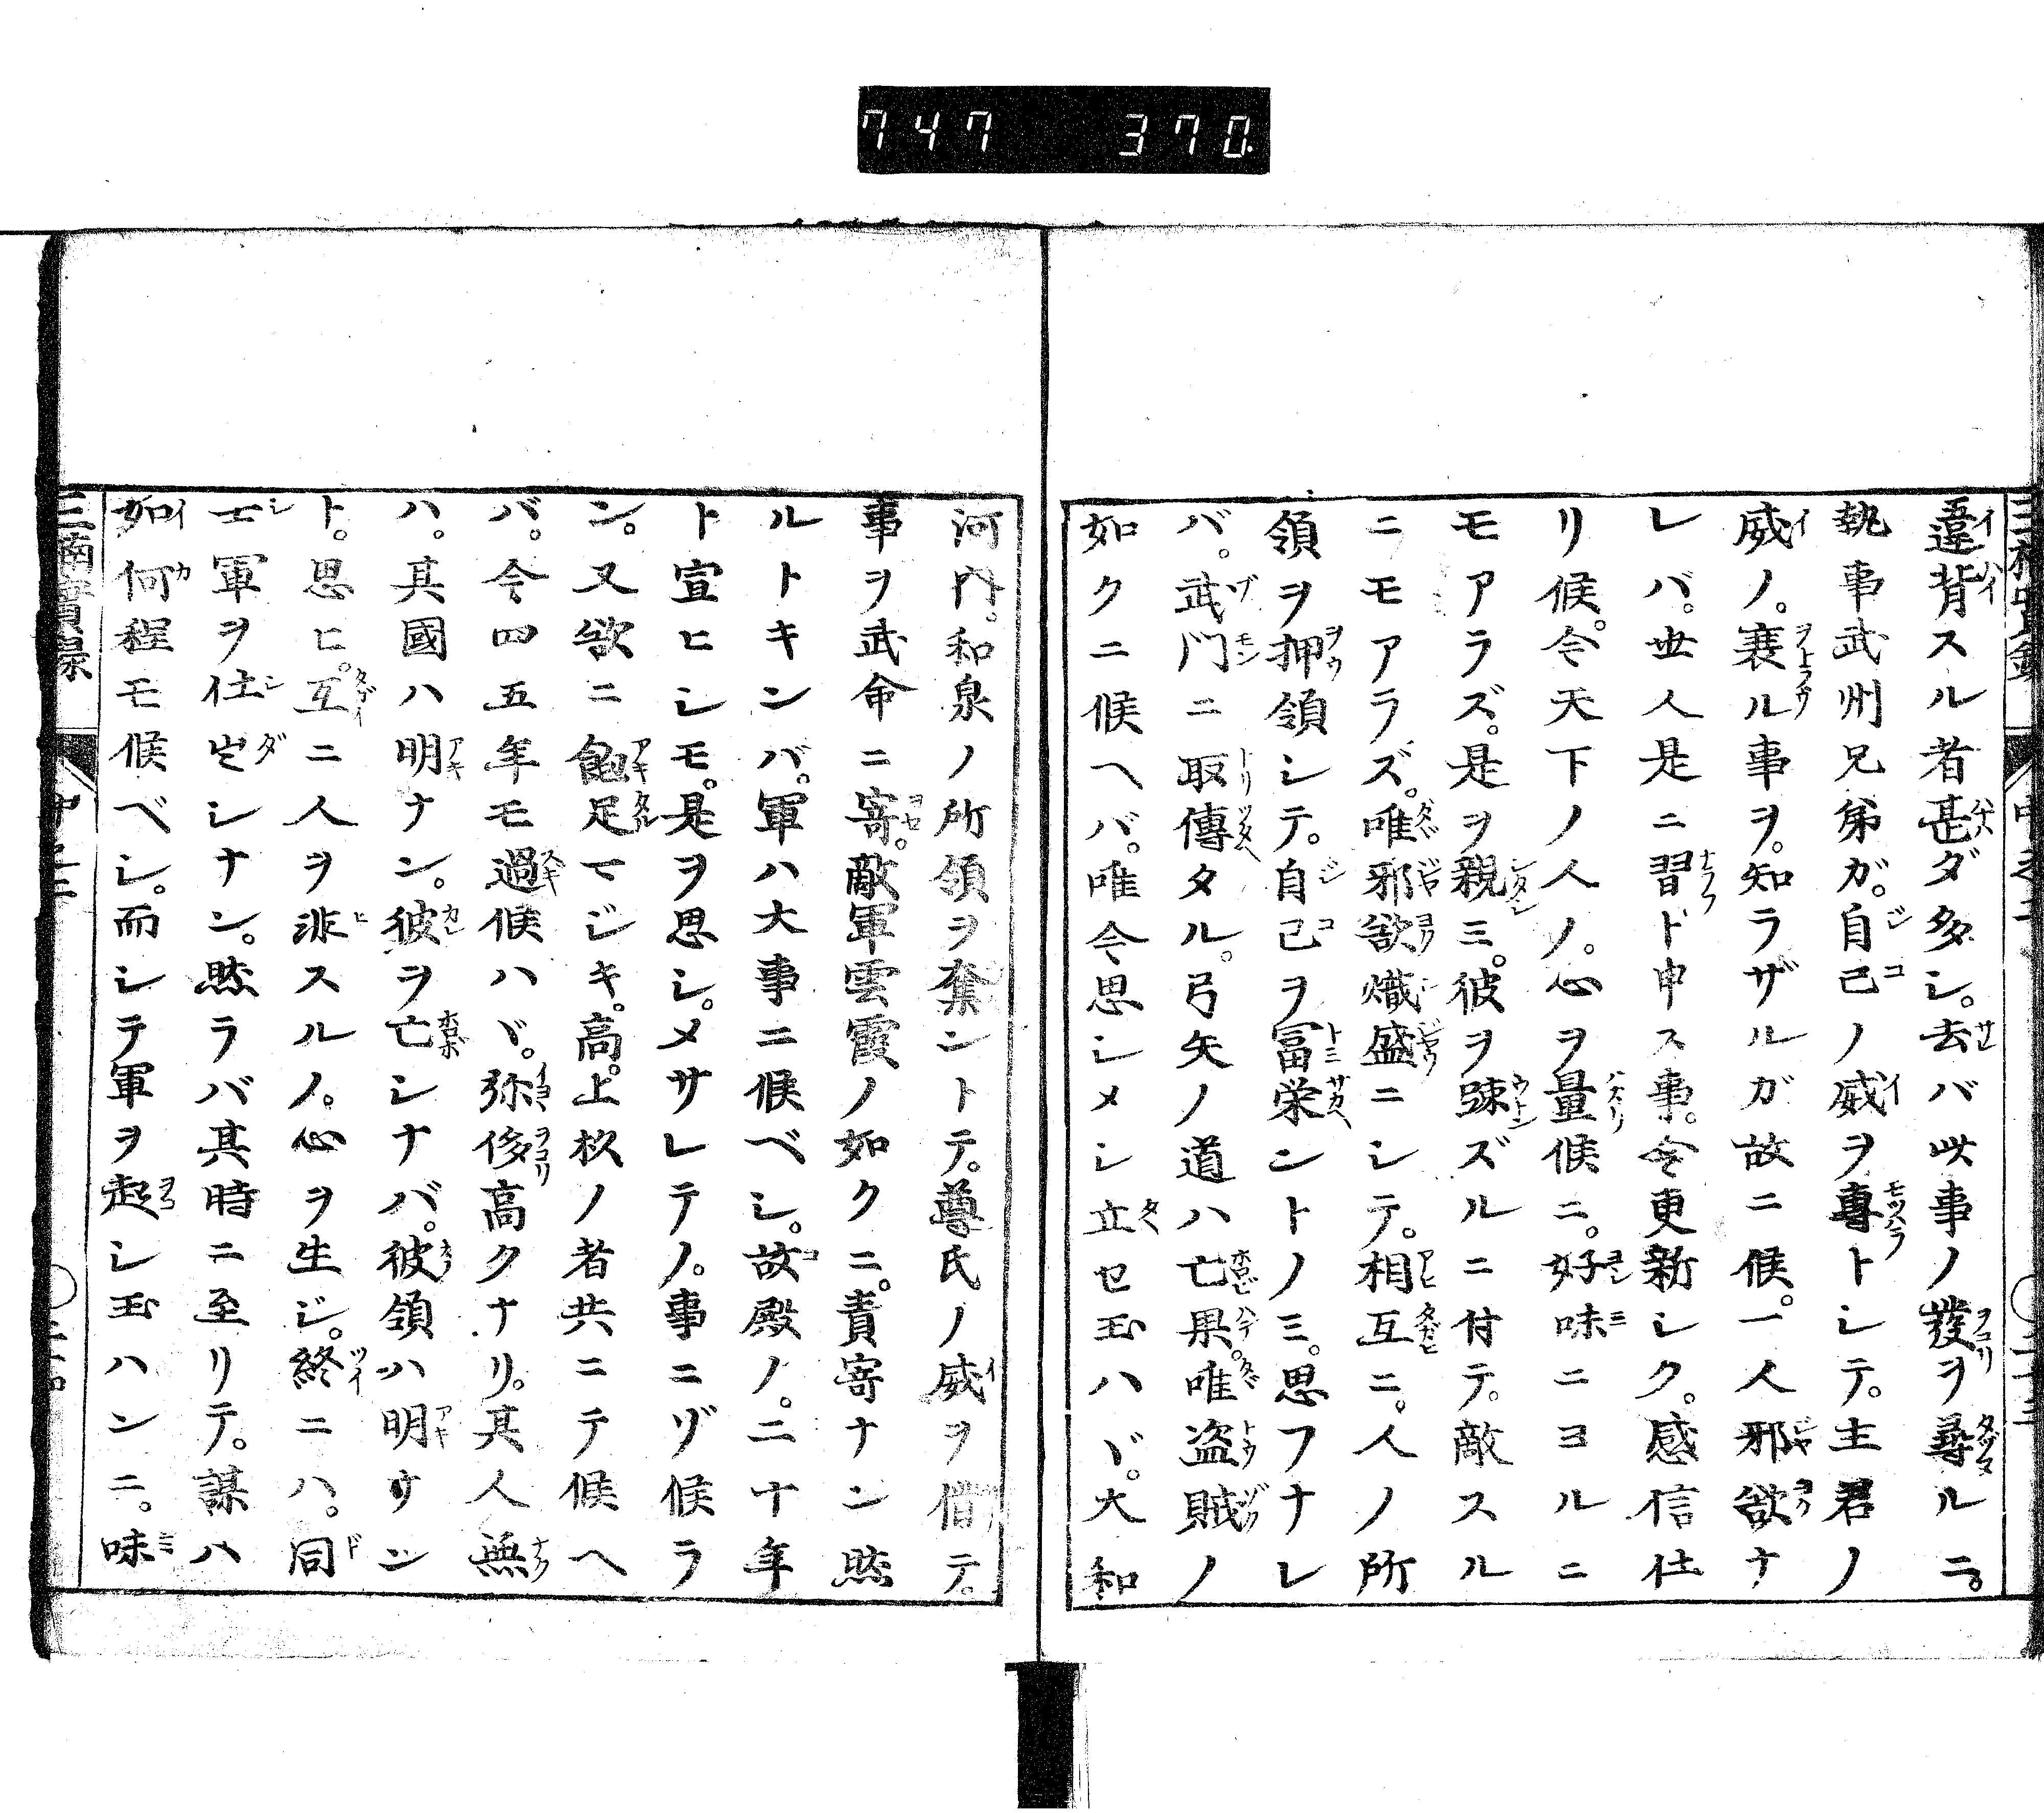 747 370
違背スル者甚ダ多シ。去バ此事ノ發ヲ尋ルニ。
執事武州兄弟ガ。自己ノ威ヲ專トシテ。主君ノ
威ノ。衰ル事ヲ。知ラザルガ故ニ候。一人邪欲ナ
レバ。世人是ニ習ト申ス事。今更新シク。感信仕
リ候。今天下ノ人ノ。心ヲ量候ニ。好味ニヨルニ
モアラズ。是ヲ親ミ。彼ヲ踈ズルニ付テ。敵スル
ニモアラズ。唯邪欲熾盛ニシテ。相互ニ。人ノ所
領ヲ押領シテ。自己ヲ冨栄ントノミ。思フナレ
バ。武門ニ取傳タル。弓矢ノ道ハ亡果。唯盗賊ノ
如クニ候ヘバ。唯今思シメシ立セ玉ハヾ。大和
河内。和泉ノ所領ヲ奪ントテ。尊氏ノ威ヲ借テ。
事ヲ武命ニ寄。敵軍雲霞ノ如クニ。責寄ナン㸃
ルトキンバ。軍ハ大事ニ候ベシ。故殿ノ。二十年
ト宣ヒシモ。是ヲ思シ。メサレテノ。事ニゾ候ラ
ン。又欲ニ飽足マジキ。高。上杦ノ者共ニテ候ヘ
バ。今四五年モ過候ハヾ。弥侈高クナリ。其人無
ハ。其國ハ明ナン。彼ヲ亡シナバ。彼領ハ明ナン
ト。思ヒ。互ニ人ヲ非スルノ。心ヲ生ジ。終ニハ。同
士軍ヲ仕出シナン。然ラバ其時ニ至リテ。謀ハ
如何程モ候ベシ。而シテ軍ヲ起シ玉ハンニ。味